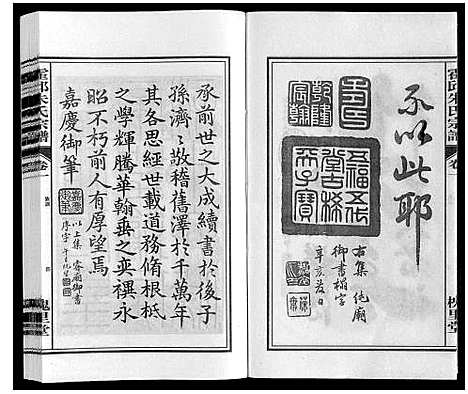 不以此耶
五福五代
堂古稀
天子寶
右集 純廟
御書楹字
辛亥春日
霍邱朱氏宗譜
槐里堂
承前世之大成續書於後子
孫濟〻敬稽舊澤於千萬年
其各思經世載道務脩根柢
之學輝騰華翰垂之奕禩永
昭不朽前人有厚望焉
嘉慶御筆
以上集 睿廟御書
序字
霍邱朱氏宗譜
卷
槐里堂